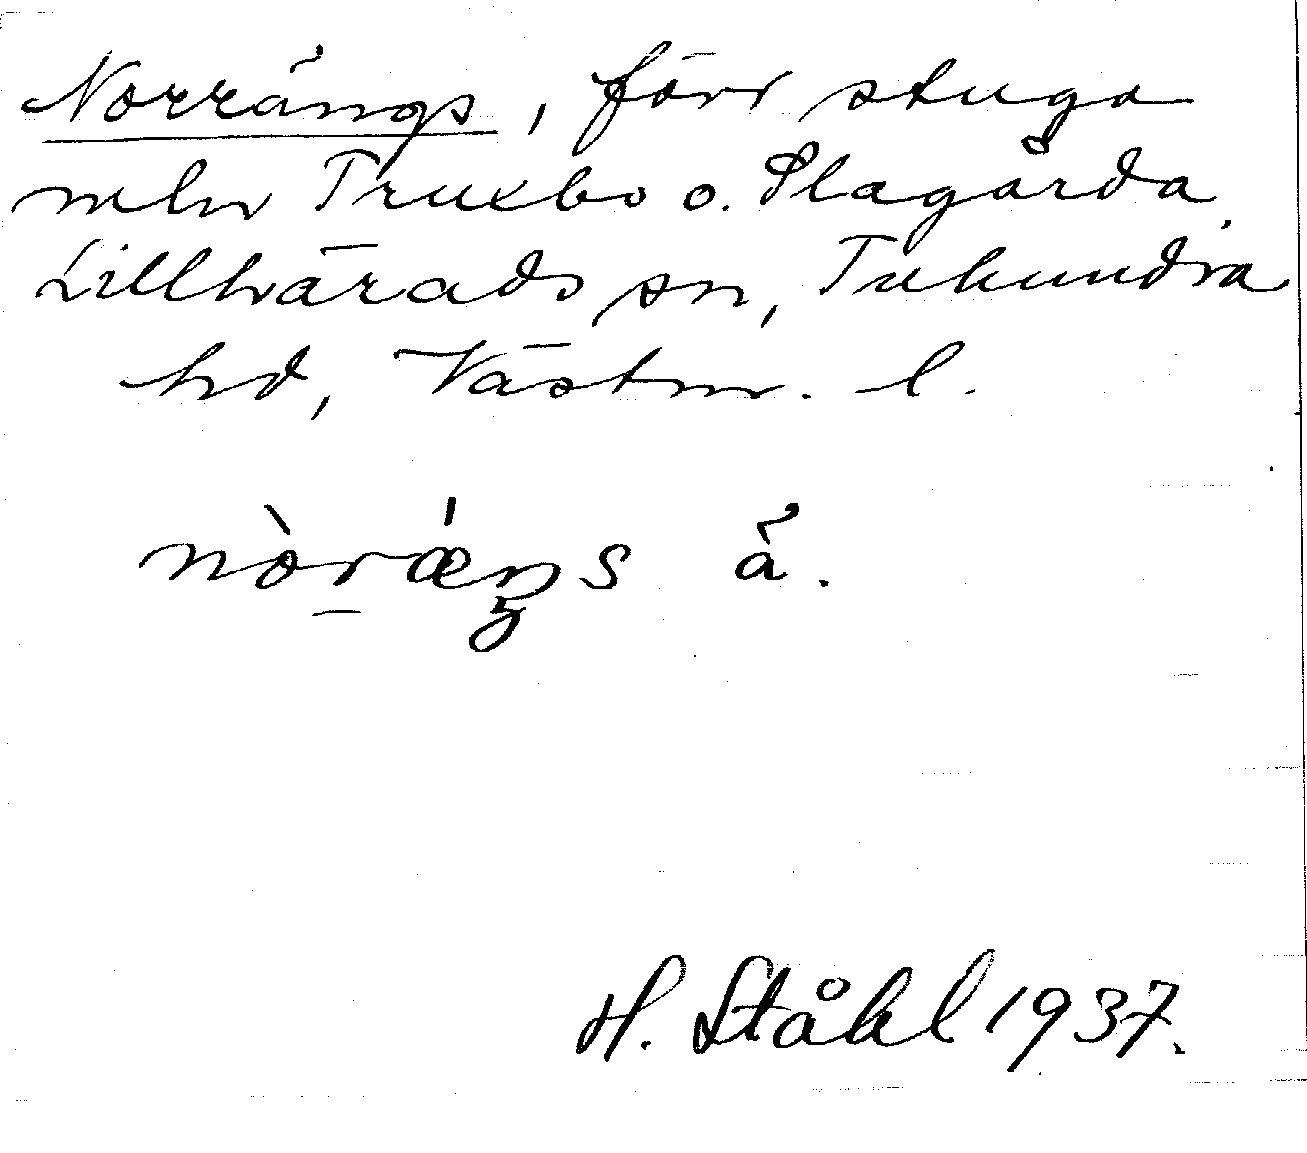 Norrängs, förr stuga
mln Truxbo o. Slagårda,
Lillhärads sn, Tuhundra
hd, Västm. l.
nòrǽŋs å̀.
H. Ståhl 1937.